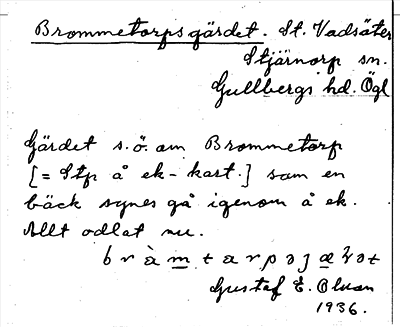 Brommetorpsgärdet. St. Vadsäter
Stjärnorp sn.
Gullbergs hd. Ögl
Gärdet s.ö. om Brommetorp
[= Stp å ek-kart.] som en
bäck synes gå igenom å ek.
Allt odlat nu.
Gustaf E. Olson
1936.